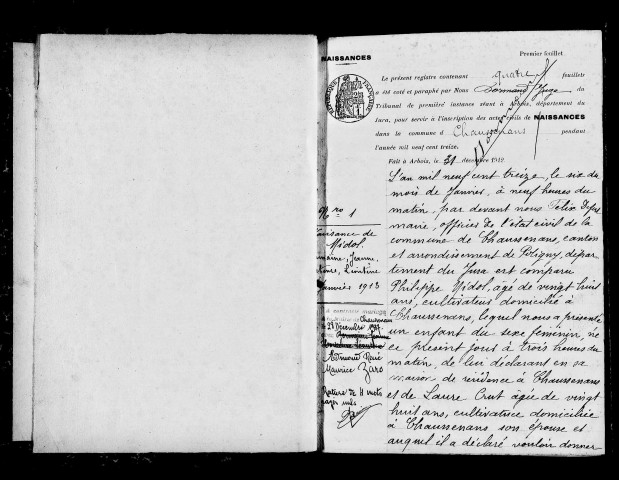 NAISSANCES
Premier feuillet
Le présent registre contenant quatre feuillets
a été coté et paraphé par Nous Juge du
Tribunal de première instance séant à Arbois, département du
Jura, pour servir à l'inscription des actes civils de NAISSANCES
dans la commune d Chaussenans pendant
l'année mil neuf cent treize.
Fait à Arbois, le 31 décembre 1912
RÉPUBLIQUE FRANÇAISE
L'an mil neuf cent treize, le six du
mois de Janvier, à neuf heures du
matin, par devant nous Félix
maire, officier de l'état civil de la
commune de Chaussenans, canton
et arrondissement de Poligny, dépar
tement du Jura est comparu
Philippe Midol, âgé de vingt huit
ans, cultivateur domicilié à
Chaussenans, lequel nous a présenté
un enfant du sexe féminin, né
ce présent jour à trois heures du
matin, de lui déclarant en sa
maison de résidence à Chaussenans
et de Laure Crut âgée de vingt
huit ans, cultivatrice domiciliée
à Chaussenans son épouse et
auquel il a déclaré vouloir donner
Nro 1
Naissance de
Midol
maine, Jeanne,
Léontine
Janvier 1913
a contracté mariage
Chaussenans
le 28 Décembre
Edmond René
Maurice Zaro
Rature de 11 mots
rayés nuls